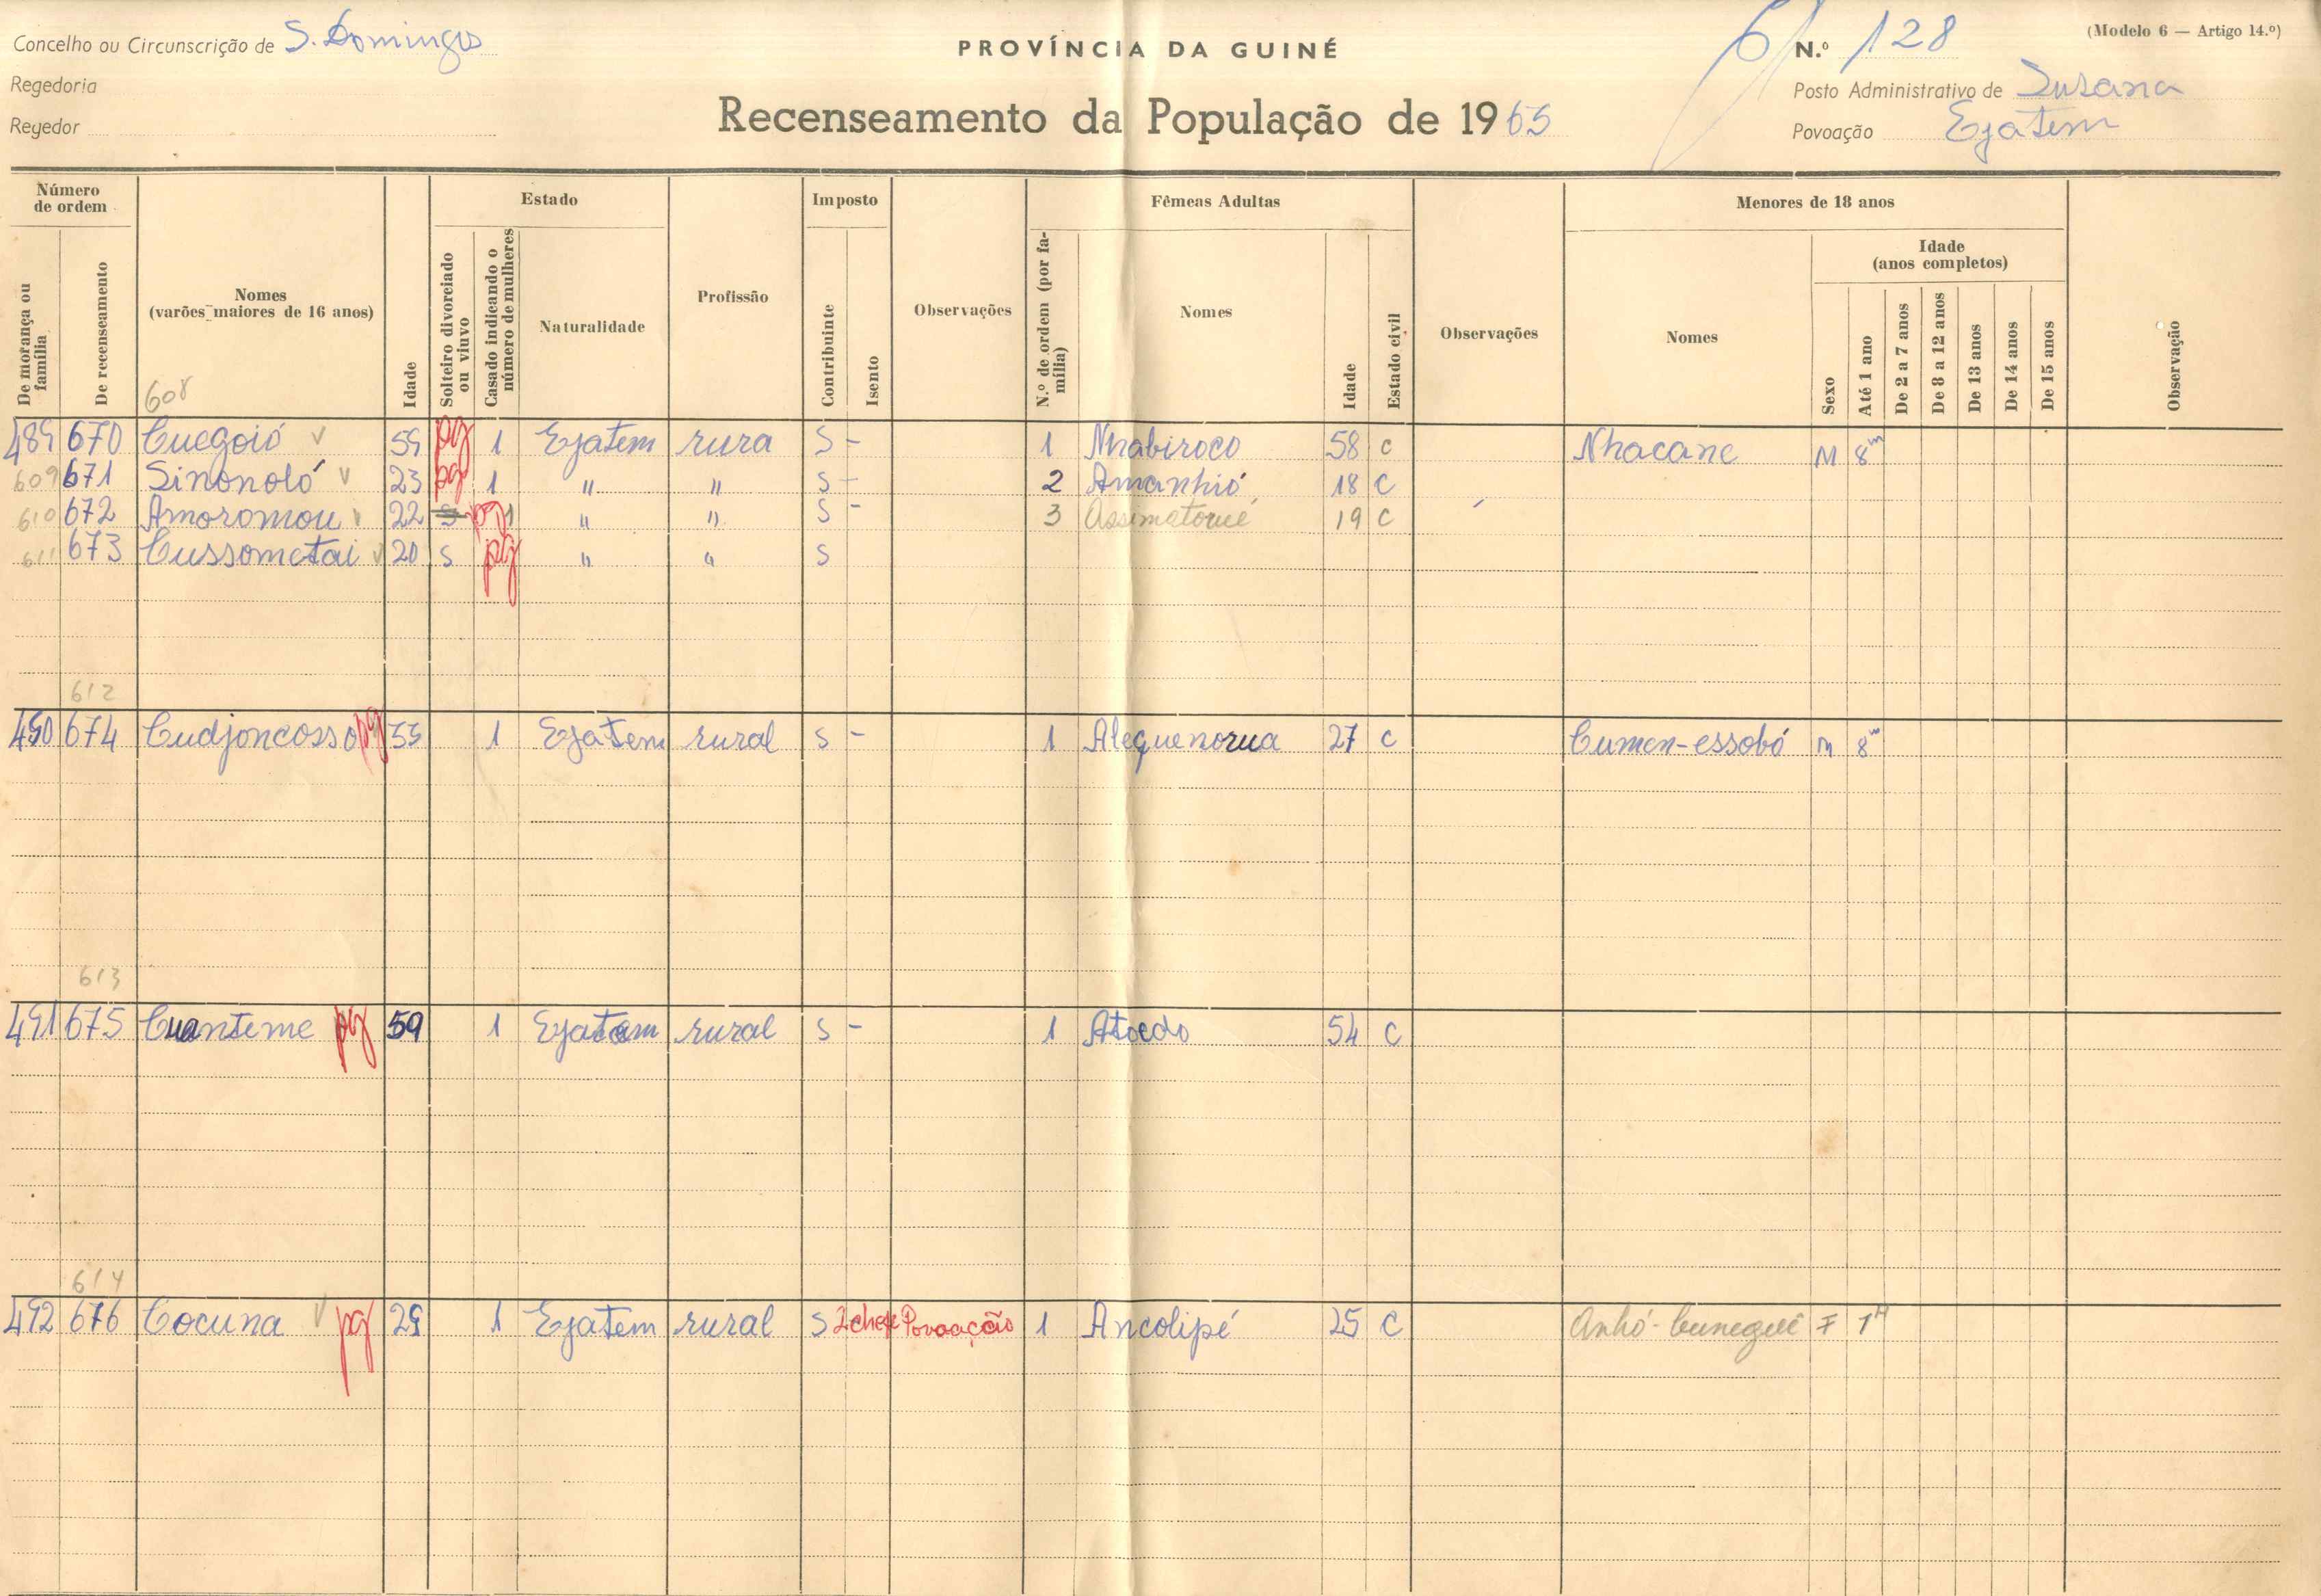 Concelho ou Circunscrição de S. Domingos
PROVÍNCIA DA GUINÉ
6 N.º 128
(Modelo 6 — Artigo 14.º)
Regedoria
Posto Administrativo de Suzana
Regedor
Recenseamento da População de 1965
Povoação Ejatem
Número de ordem
De morança ou família
De recenseamento
Nomes (varões maiores de 16 anos)
Idade
Estado
Solteiro divorciado ou viuvo
Casado indicando o número de mulheres
Naturalidade
Profissão
Imposto
Contribuinte
Isento
Observações
Fêmeas Adultas
N.º de ordem (por família)
Nomes
Idade
Estado civil
Observações
Menores de 18 anos
Nomes
Sexo
Idade (anos completos)
Até 1 ano
De 2 a 7 anos
De 8 a 12 anos
De 13 anos
De 14 anos
De 15 anos
Observação
608
489 670 Cuegoió v 59 pg 1 Ejatem rura S - 1 Nhabiroco 58 c Nhacane M 8m
609 671 Sinonoló v 23 pg 1 " " S - 2 Amanhió 18 c
610 672 Amoromou v 22 s pg 1 " " S - 3 Assimatorué 19 c
611 673 Cussometai v 20 s pg " " S
612
490 674 Cudjoncosso pg 55 1 Ejatem rural S - 1 Alequenorua 27 c Cumen-essobó m 8m
613
491 675 Cuanteme pg 59 1 Ejatem rural S - 1 Atoedo 54 c
614
492 676 Cocuna v pg 29 1 Ejatem rural S 2 chefe Povoação 1 Ancolipé 25 c Anhó-Cunegué F 1A